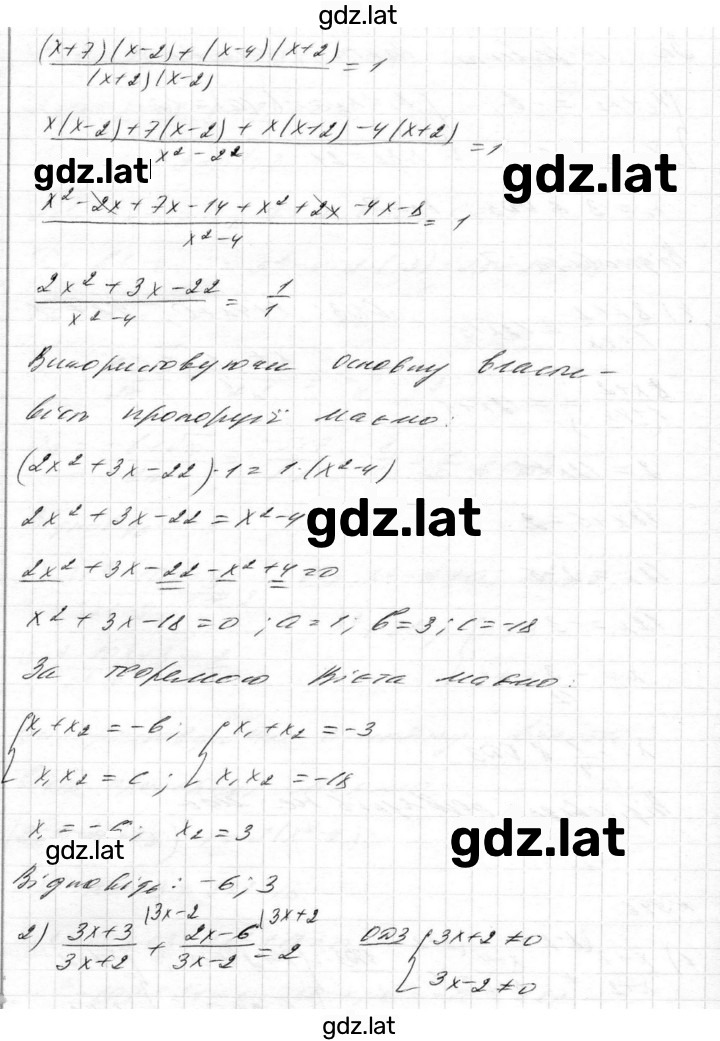 gdz.lat
((x+7)(x-2)+(x-4)(x+2))/((x+2)(x-2)) = 1
(x(x-2)+7(x-2)+x(x+2)-4(x+2))/(x²-2²) = 1
gdz.lat gdz.lat
(x²-2x+7x-14+x²+2x-4x-8)/(x²-4) = 1
(2x²+3x-22)/(x²-4) = 1/1
Використовуючи основну власти-
вість пропорції маємо:
(2x²+3x-22)·1=1·(x²-4)
2x²+3x-22=x²-4
gdz.lat
2x²+3x-22-x²+4=0
x²+3x-18=0; a=1; b=3; c=-18
За теоремою Вієта маємо:
{x₁+x₂=-b; {x₁+x₂=-3
x₁x₂=c; x₁x₂=-18
x₁=-6; x₂=3
gdz.lat gdz.lat
Відповідь: -6; 3
2) (3x+3)/(3x+2) |3x-2 + (2x-6)/(3x-2) |3x+2 = 2 ОДЗ {3x+2≠0
3x-2≠0
gdz.lat